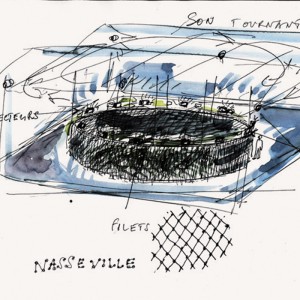 SON TOURNANT
ECTEURS
FILETS
NASSEVILLE